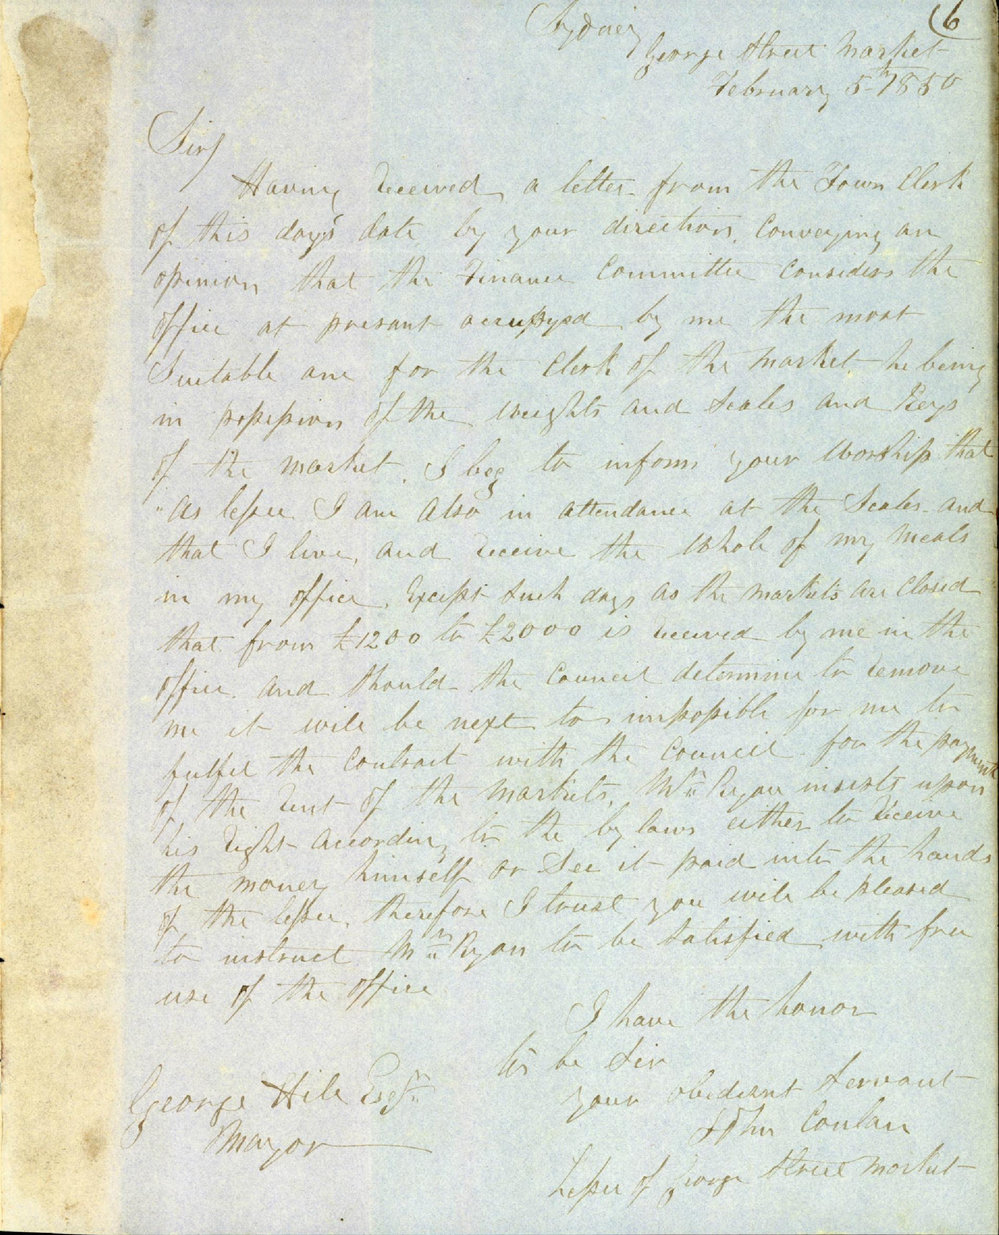 (6
Sydney
George Street Market
February 5th 1850
Sir
Having Received a letter from the Town Clerk
of this day's date by your direction, Conveying an
opinion that the Finance Committee Considers the
office at present occupyed by me the most
Suitable one for the Clerk of the Market he being
in possession of the Weights and Scales and Keys
of the market, I beg to inform your Worship that
"as lessee I am also in attendance at the Scales and
that I live, and Receive the Whole of my Meals
in my office, Except Such days as the Markets are Closed
that from £1200 to £2000 is Received by me in the
office and should the Council determine to Remove
me it will be next to impossible for me to
fulfil the Contract with the Council for the payment
of the Rent of the Markets, Mr Ryan insists upon
his Right according to the by laws either to Receive
the money himself or See it paid into the hands
of the lessee, therefore I trust you will be pleased
to instruct Mr Ryan to be Satisfied with free
use of the office
I have the honor
to be Sir
your obedient Servant
John Conlan
Lessee of George Street Market
George Hill Esqr
Mayor